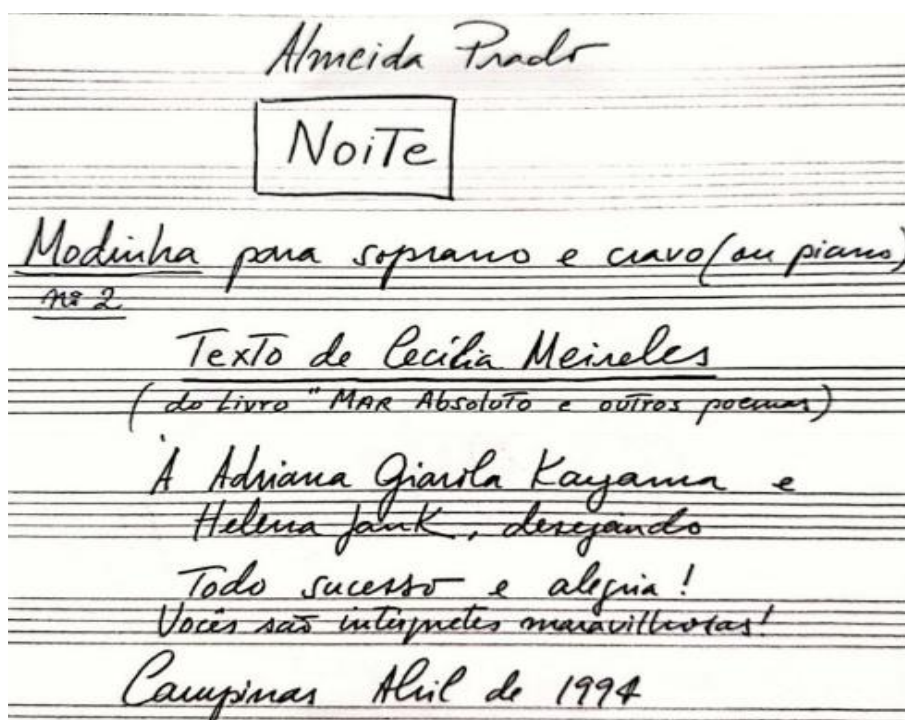 Almeida Prado
NoiTe
Modinha para soprano e cravo (ou piano)
nº 2
Texto de Cecília Meireles
(do Livro "MAR Absoluto e outros poemas)
À Adriana Giarola Kayama e
Helena Jank, desejando
Todo sucesso e alegria!
Vocês são intérpretes maravilhosas!
Campinas Abril de 1994